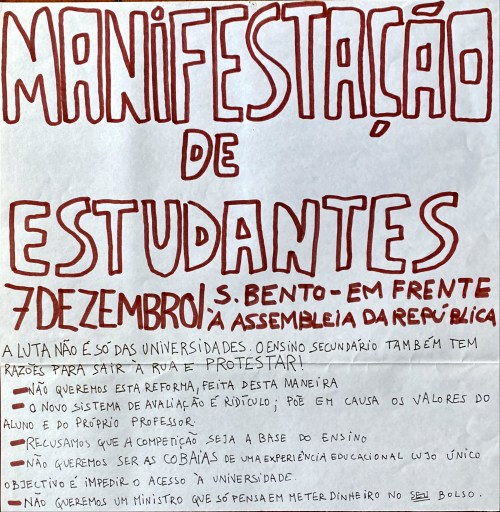 MANIFESTAÇÃO
DE
ESTUDANTES
7 DEZEMBRO/ S. BENTO - EM FRENTE
À ASSEMBLEIA DA REPÚBLICA
A LUTA NÃO É SÓ DAS UNIVERSIDADES. O ENSINO SECUNDÁRIO TAMBÉM TEM
RAZÕES PARA SAIR À RUA E PROTESTAR!
- NÃO QUEREMOS ESTA REFORMA, FEITA DESTA MANEIRA
- O NOVO SISTEMA DE AVALIAÇÃO É RIDÍCULO; PÕE EM CAUSA OS VALORES DO
ALUNO E DO PRÓPRIO PROFESSOR.
- RECUSAMOS QUE A COMPETIÇÃO SEJA A BASE DO ENSINO
- NÃO QUEREMOS SER AS COBAIAS DE UMA EXPERIÊNCIA EDUCACIONAL CUJO ÚNICO
OBJECTIVO É IMPEDIR O ACESSO À UNIVERSIDADE.
- NÃO QUEREMOS UM MINISTRO QUE SÓ PENSA EM METER DINHEIRO NO SEU BOLSO.